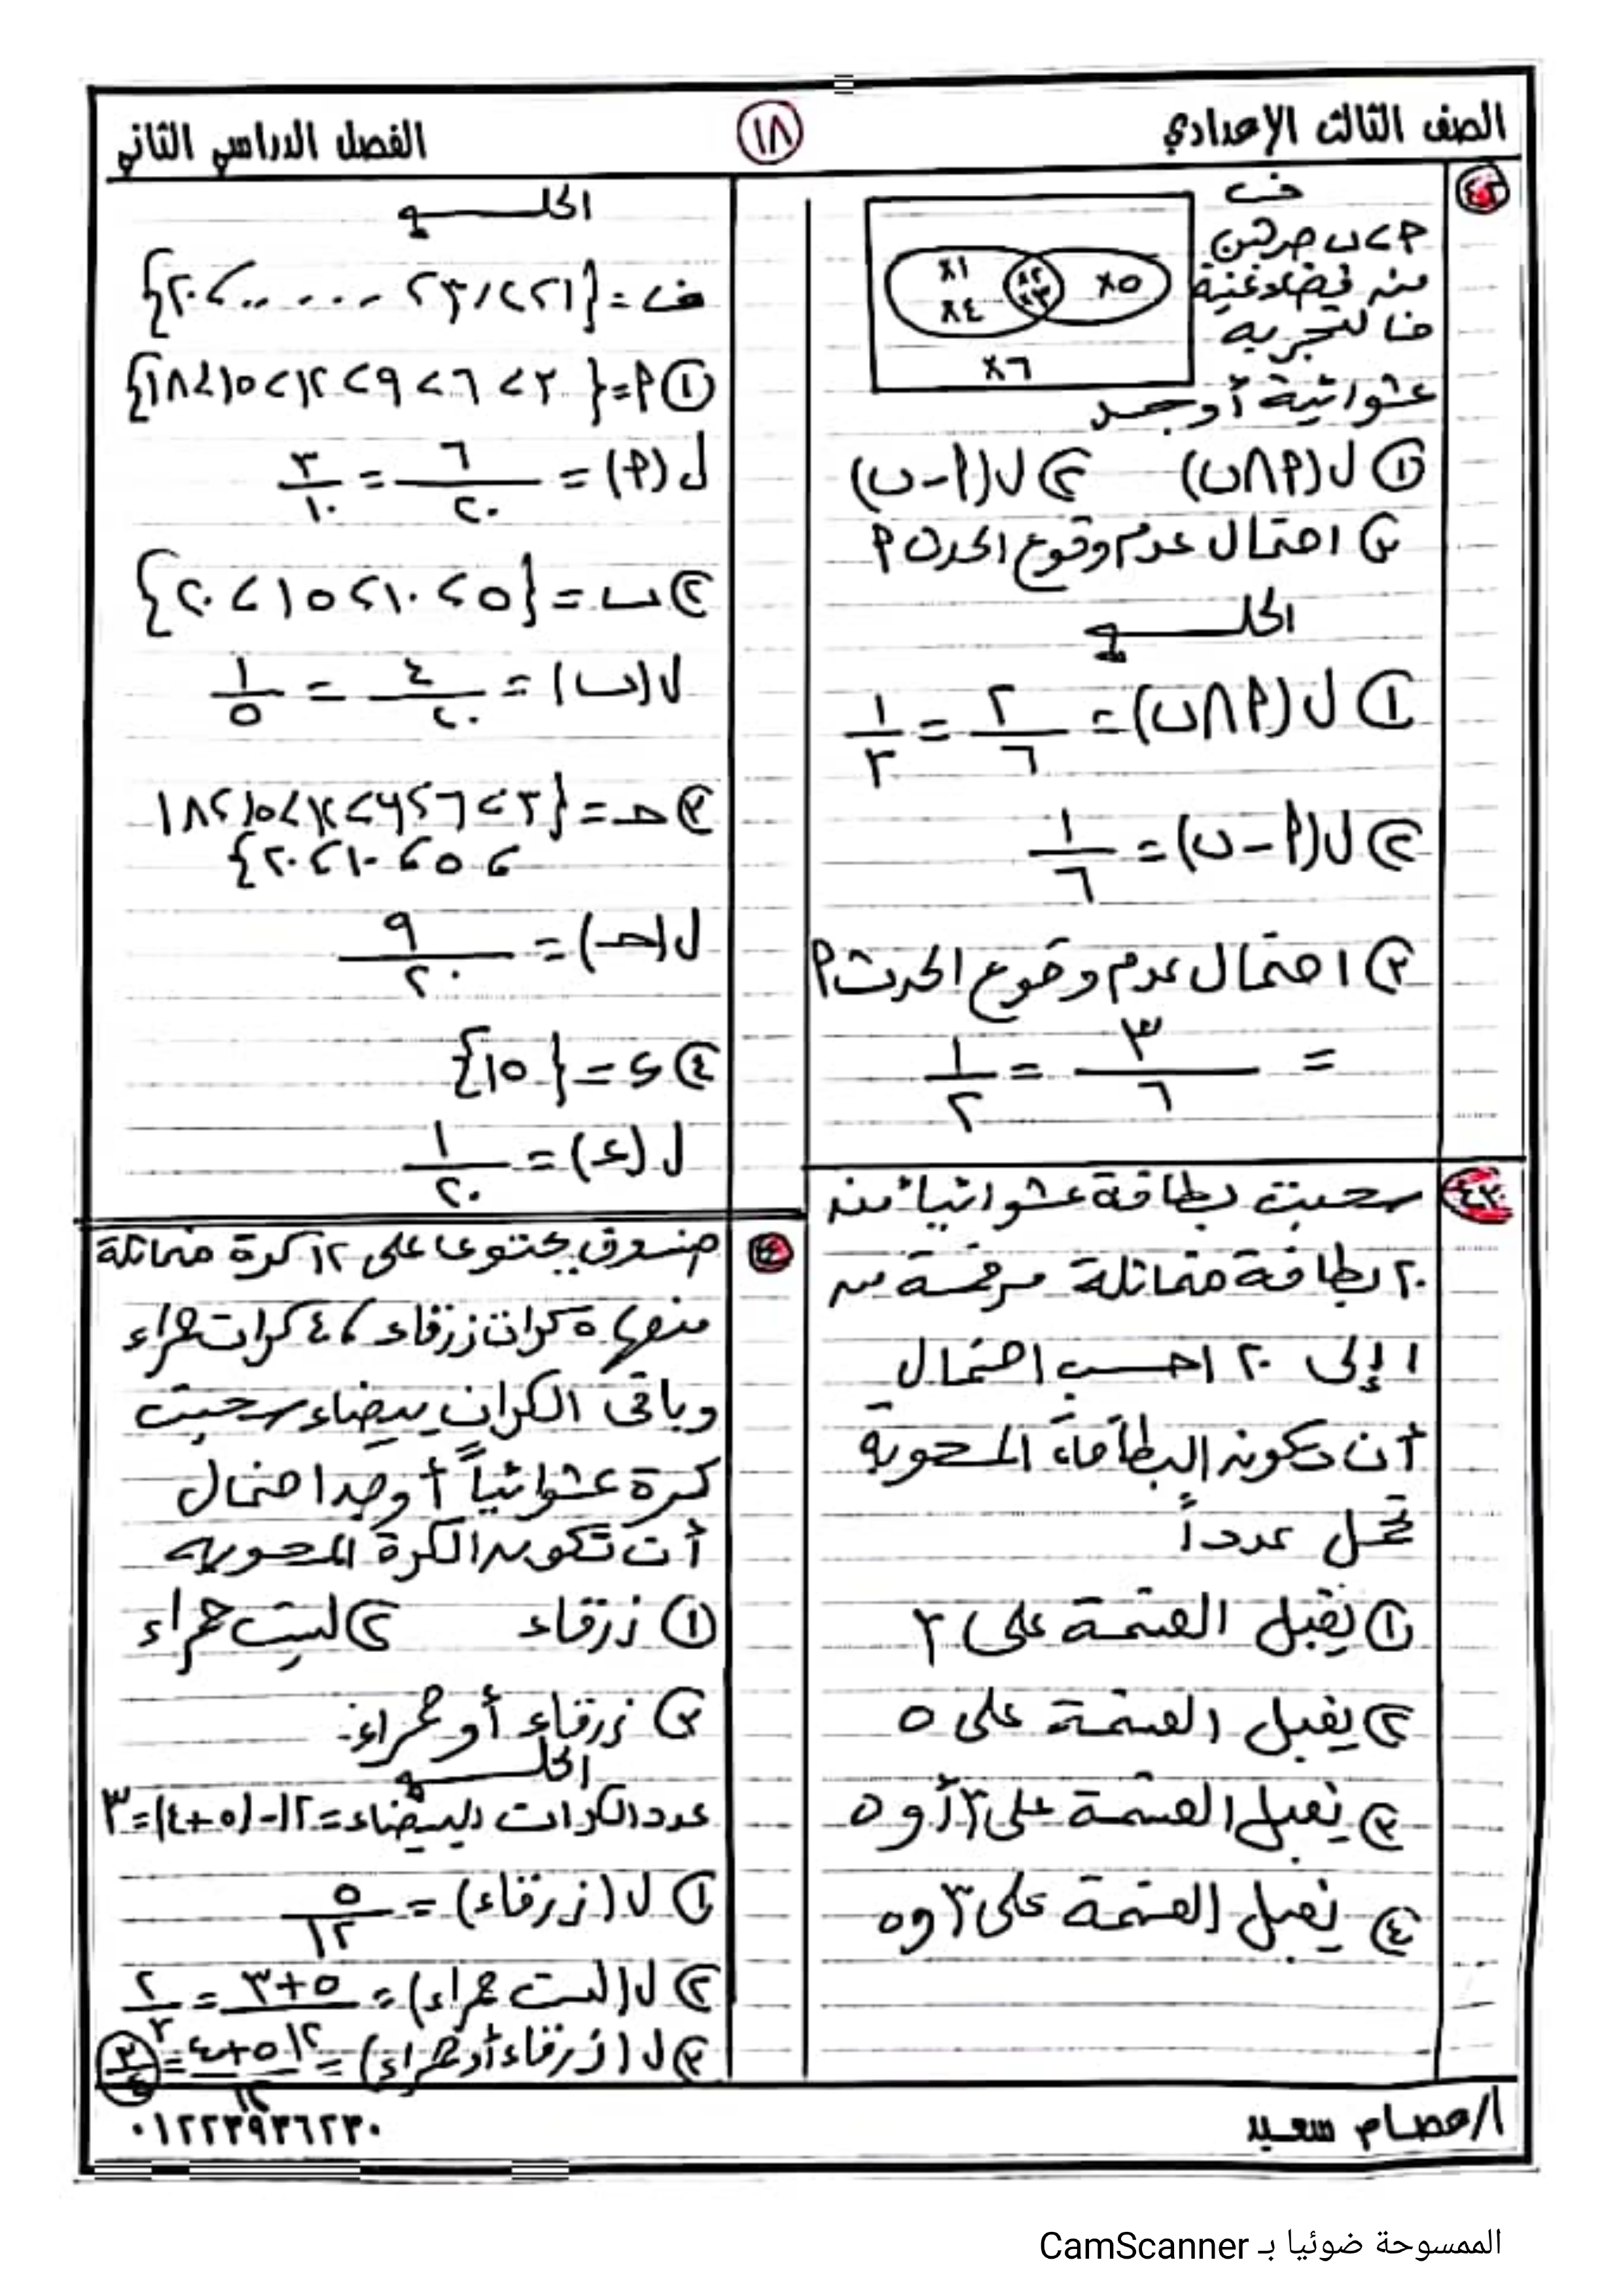 الصف الثالث الإعدادي
١٨
الفصل الدراسي الثاني
٤٢
ف
٢ × ١
× ٤
× ٢
× ٣
× ٥
× ٦
أ ، ب حدثين
من فضاء عينة
لتجربة
عشوائية أوجد
① ل(أ∩ب) ② ل(أ-ب)
③ احتمال عدم وقوع الحدث أ
الحل
① ل(أ∩ب) = ٢/٦ = ١/٣
② ل(أ-ب) = ١/٦
③ احتمال عدم وقوع الحدث أ
= ٣/٦ = ١/٢
٤٣
سحبت بطاقة عشوائياً من
٢٠ بطاقة متماثلة مرقمة من
١ إلى ٢٠ احسب احتمال
أن تكون البطاقة المسحوبة
تحمل عدداً
① يقبل القسمة على ٣
② يقبل القسمة على ٥
③ يقبل القسمة على ٣ أو ٥
④ يقبل القسمة على ٣ و ٥
الحل
ف = {١، ٢، ٣، ......، ٢٠}
① أ = {٣، ٦، ٩، ١٢، ١٥، ١٨}
ل(أ) = ٦/٢٠ = ٣/١٠
② ب = {٥، ١٠، ١٥، ٢٠}
ل(ب) = ٤/٢٠ = ١/٥
③ حـ = {٣، ٦، ٩، ١٢، ١٥، ١٨
، ٥، ١٠، ٢٠}
ل(حـ) = ٩/٢٠
④ د = {١٥}
ل(د) = ١/٢٠
صندوق يحتوى على ١٢ كرة متماثلة
منها ٥ كرات زرقاء ، ٤ كرات حمراء
وباقى الكرات بيضاء سحبت
كرة عشوائياً أوجد احتمال
أن تكون الكرة المسحوبة
① زرقاء ② ليست حمراء
③ زرقاء أو حمراء.
الحل
عدد الكرات البيضاء = ١٢-(٥+٤)=٣
① ل(زرقاء) = ٥/١٢
② ل(ليست حمراء) = ٥+٣/١٢ = ٢/٣
③ ل(زرقاء أو حمراء) = ٥+٤/١٢ = ٣/٤
أ/عصام سعيد
٠١٢٢٣٩٣٦٢٣٠
الممسوحة ضوئيا بـ CamScanner